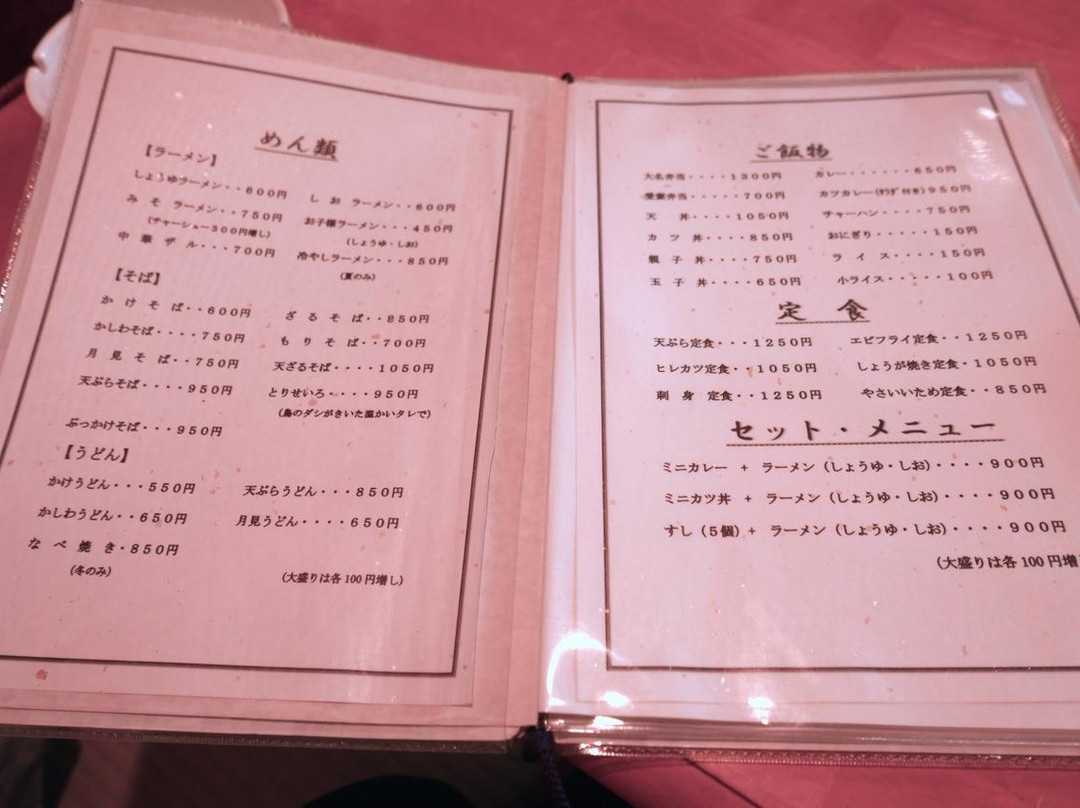 めん類
【ラーメン】
しょうゆラーメン・・600円
しお ラーメン・・600円
みそ ラーメン・・750円
お子様ラーメン・・・450円
(チャーシュー300円増し)
(しょうゆ・しお)
中華ザル・・・700円
冷やしラーメン・・・850円
(夏のみ)
【そば】
かけそば・・600円
ざるそば・・850円
かしわそば・・・・750円
もりそば・・700円
月見そば・・750円
天ざるそば・・・・1050円
天ぷらそば・・・・950円
とりせいろ・・・・950円
(鳥のダシがきいた温かいタレで)
ぶっかけそば・・・950円
【うどん】
かけうどん・・・550円
天ぷらうどん・・・850円
かしわうどん・・650円
月見うどん・・・・650円
なべ焼き・850円
(冬のみ)
(大盛りは各100円増し)
ご飯物
大名弁当・・・・1300円
カレー・・・・・・650円
弁当・・・・・700円
カツカレー(サラダ付き)950円
天 丼・・・・1050円
チャーハン・・・・750円
カツ丼・・・・850円
おにぎり・・・・・150円
親子丼・・・・750円
ライス・・・・150円
玉子丼・・・・650円
小ライス・・・・・100円
定 食
天ぷら定食・・・1250円
エビフライ定食・・・1250円
ヒレカツ定食・・1050円
しょうが焼き定食・1050円
刺身 定食・・1250円
やさいいため定食・・850円
セット・メニュー
ミニカレー + ラーメン(しょうゆ・しお)・・・・900円
ミニカツ丼 + ラーメン(しょうゆ・しお)・・・・900円
すし(5個)+ ラーメン(しょうゆ・しお)・・・・900円
(大盛りは各100円増